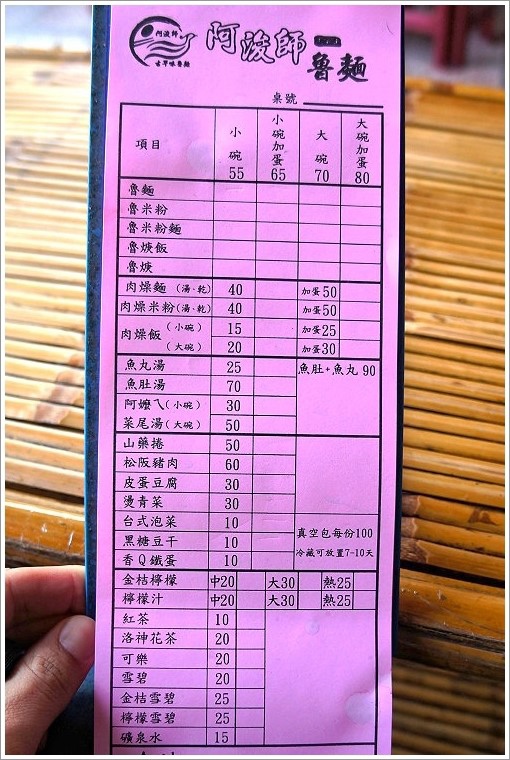 阿浚師
古早味魯麵
阿浚師
魯麵
桌號
項目 小碗55 小碗加蛋65 大碗70 大碗加蛋80
魯麵
魯米粉
魯米粉麵
魯焿飯
魯焿
肉燥麵(湯、乾) 40 加蛋50
肉燥米粉(湯、乾) 40 加蛋50
肉燥飯 (小碗) 15 加蛋25
(大碗) 20 加蛋30
魚丸湯 25 魚肚+魚丸 90
魚肚湯 70
阿嬤ㄟ(小碗) 30
菜尾湯(大碗) 50
山藥捲 50
松阪豬肉 60
皮蛋豆腐 30
燙青菜 30
台式泡菜 10 真空包每份100
黑糖豆干 10 冷藏可放置7-10天
香Q鐵蛋 10
金桔檸檬 中20 大30 熱25
檸檬汁 中20 大30 熱25
紅茶 10
洛神花茶 20
可樂 20
雪碧 20
金桔雪碧 25
檸檬雪碧 25
礦泉水 15